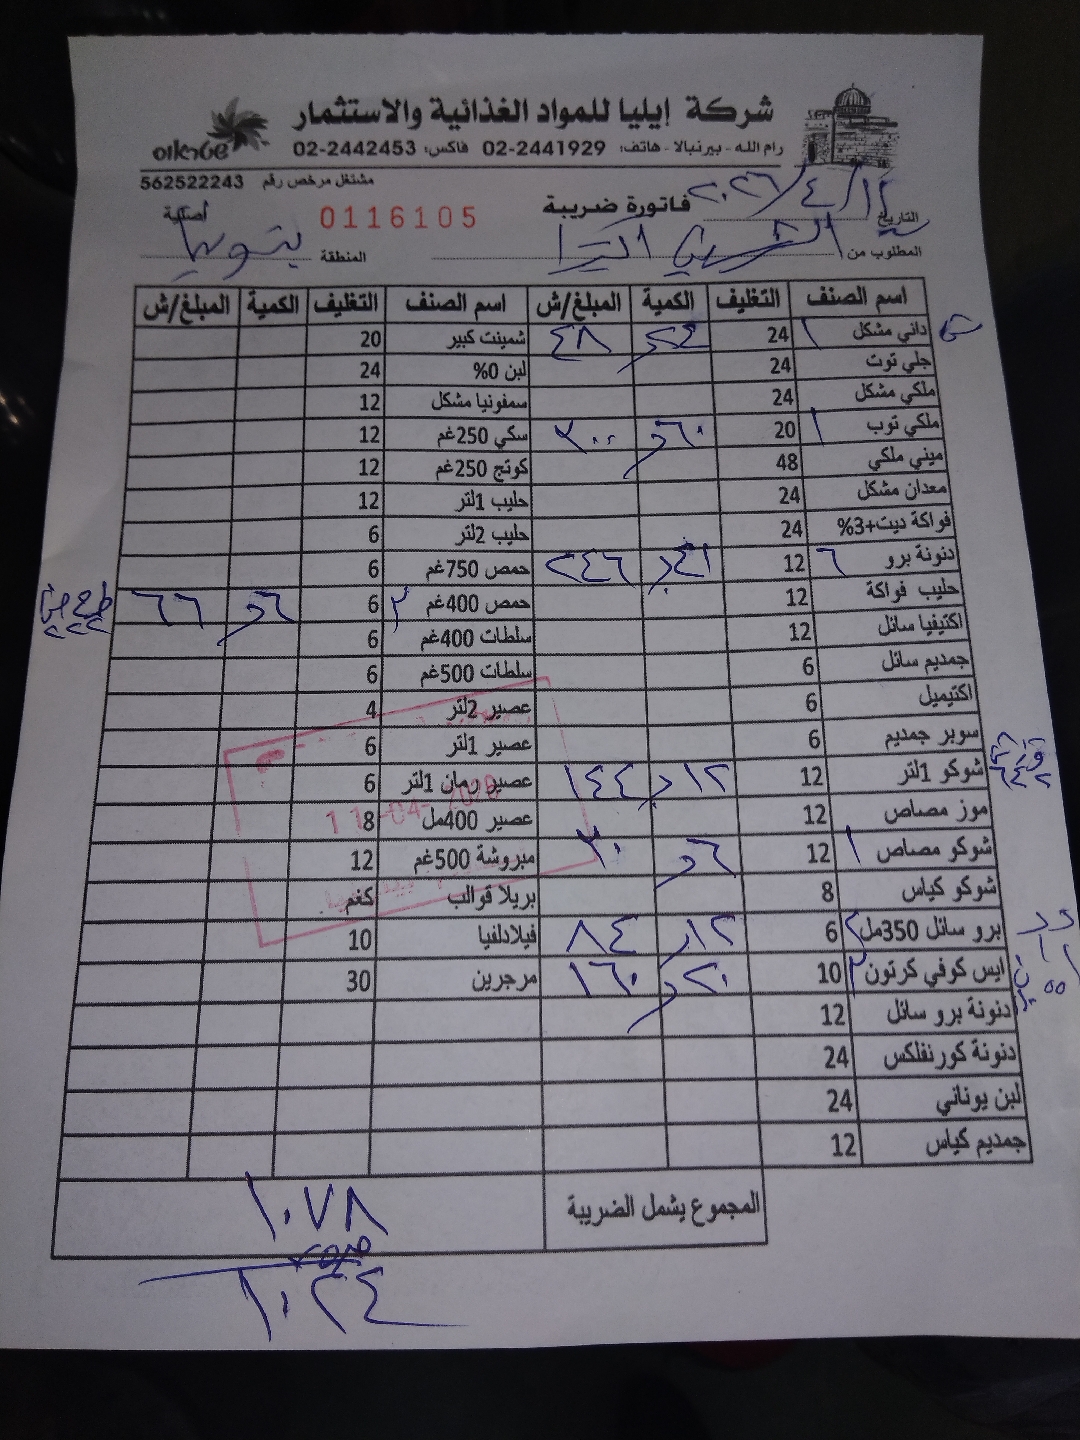 شركة إيليا للمواد الغذائية والاستثمار
رام الله - بيرنبالا - هاتف: 02-2441929 فاكس: 02-2442453
مشتغل مرخص رقم 562522243
التاريخ ١٢/٤/٢٠٢٦ فاتورة ضريبة 0116105 أصلية
المطلوب من المنطقة
اسم الصنف التغليف الكمية المبلغ/ش اسم الصنف التغليف الكمية المبلغ/ش
داني مشكل ١ 24 ٢٤ ٤٨ شمينت كبير 20
جلي توت 24 لبن 0% 24
ملكي مشكل 24 سمفونيا مشكل 12
ملكي توب ١ 20 ٦٠ ٣٠٠ سكي 250غم 12
ميني ملكي 48 كوتج 250غم 12
معدان مشكل 24 حليب 1لتر 12
فواكة ديت+3% 24 حليب 2لتر 6
دنونة برو ٦ 12 ٤١ ٢٤٦ حمص 750غم 6
حليب فواكة 12 حمص 400غم ٣ 6 ٦ ٦٦
اكتيفيا سائل 12 سلطات 400غم 6
جمديم سائل 6 سلطات 500غم 6
اكتيميل 6 عصير 2لتر 4
سوبر جمديم 6 عصير 1لتر 6
شوكو 1لتر 12 ١٢ ١٤٤ عصير رمان 1لتر 6
موز مصاص 12 عصير 400مل 8
شوكو مصاص ١ 12 ٦ ٣٠ مبروشة 500غم 12
شوكو كياس 8 بريلا قوالب كغم
برو سائل 350مل ٢ 6 ١٢ ٨٤ فيلادلفيا 10
ايس كوفي كرتون ٢ 10 ٢٠ ١٦٠ مرجرين 30
دنونة برو سائل 12
دنونة كورنفلكس 24
لبن يوناني 24
جمديم كياس 12
المجموع يشمل الضريبة ١٠٧٨
١٠٢٤